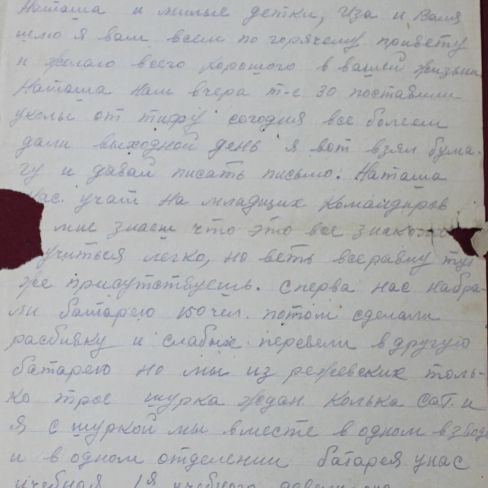 Наташа и милые детки, Иза и Валя
шлю я вам всем по горячему привету
и желаю всего хорошого в вашей жизьни
Наташа нам вчера т-е 30 поставили
уколы от тифу сегодня все болеем
дали выходной день я вот взял бума-
гу и давай писать письмо. Наташа
нас учат на младщих командиров
мне знаеш что это все знакомо
учиться легко, но веть всеравну тут
же присутствуешь. сперва нас набра-
ли батарею 150 чел. потом сделали
расбивку и слабых перевели в другую
батарею но мы из режевских толь-
ко трое шурка ждан колька сат. и
я с шуркой мы вместе в одном взводе
и в одном отделении батарея у нас
учебная 1я учебного